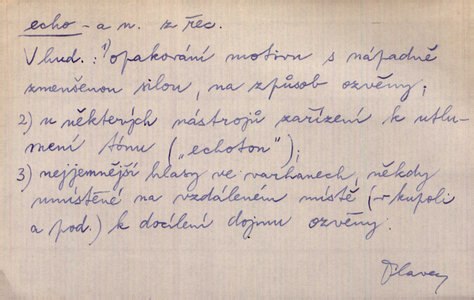 echo – a n. z řec.
V hud.: 1) opakování motivu s nápadně
zmenšenou silou, na způsob ozvěny;
2) u některých nástrojů zařízení k utlu-
mení tónu („echoton“);
3) nejjemnější hlasy ve varhanech, někdy
umístěné na vzdáleném místě (v kupoli
a pod.) k docílení dojmu ozvěny.